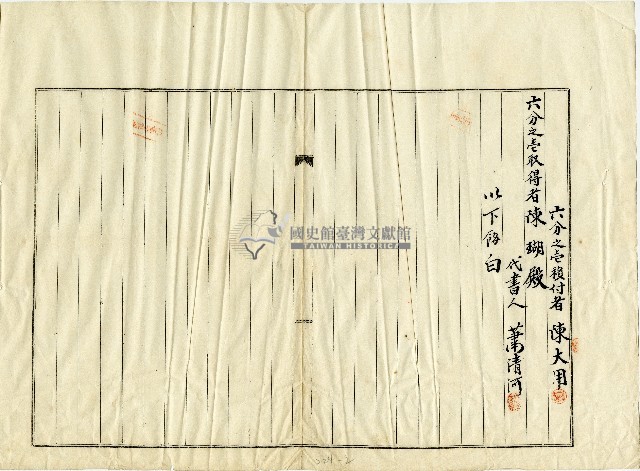 六分之壱預付者 陳大用
六分之壱取得者 陳瑚殿
代書人 葉清河
以下餘白
國史館臺灣文獻館
TAIWAN HISTORICA